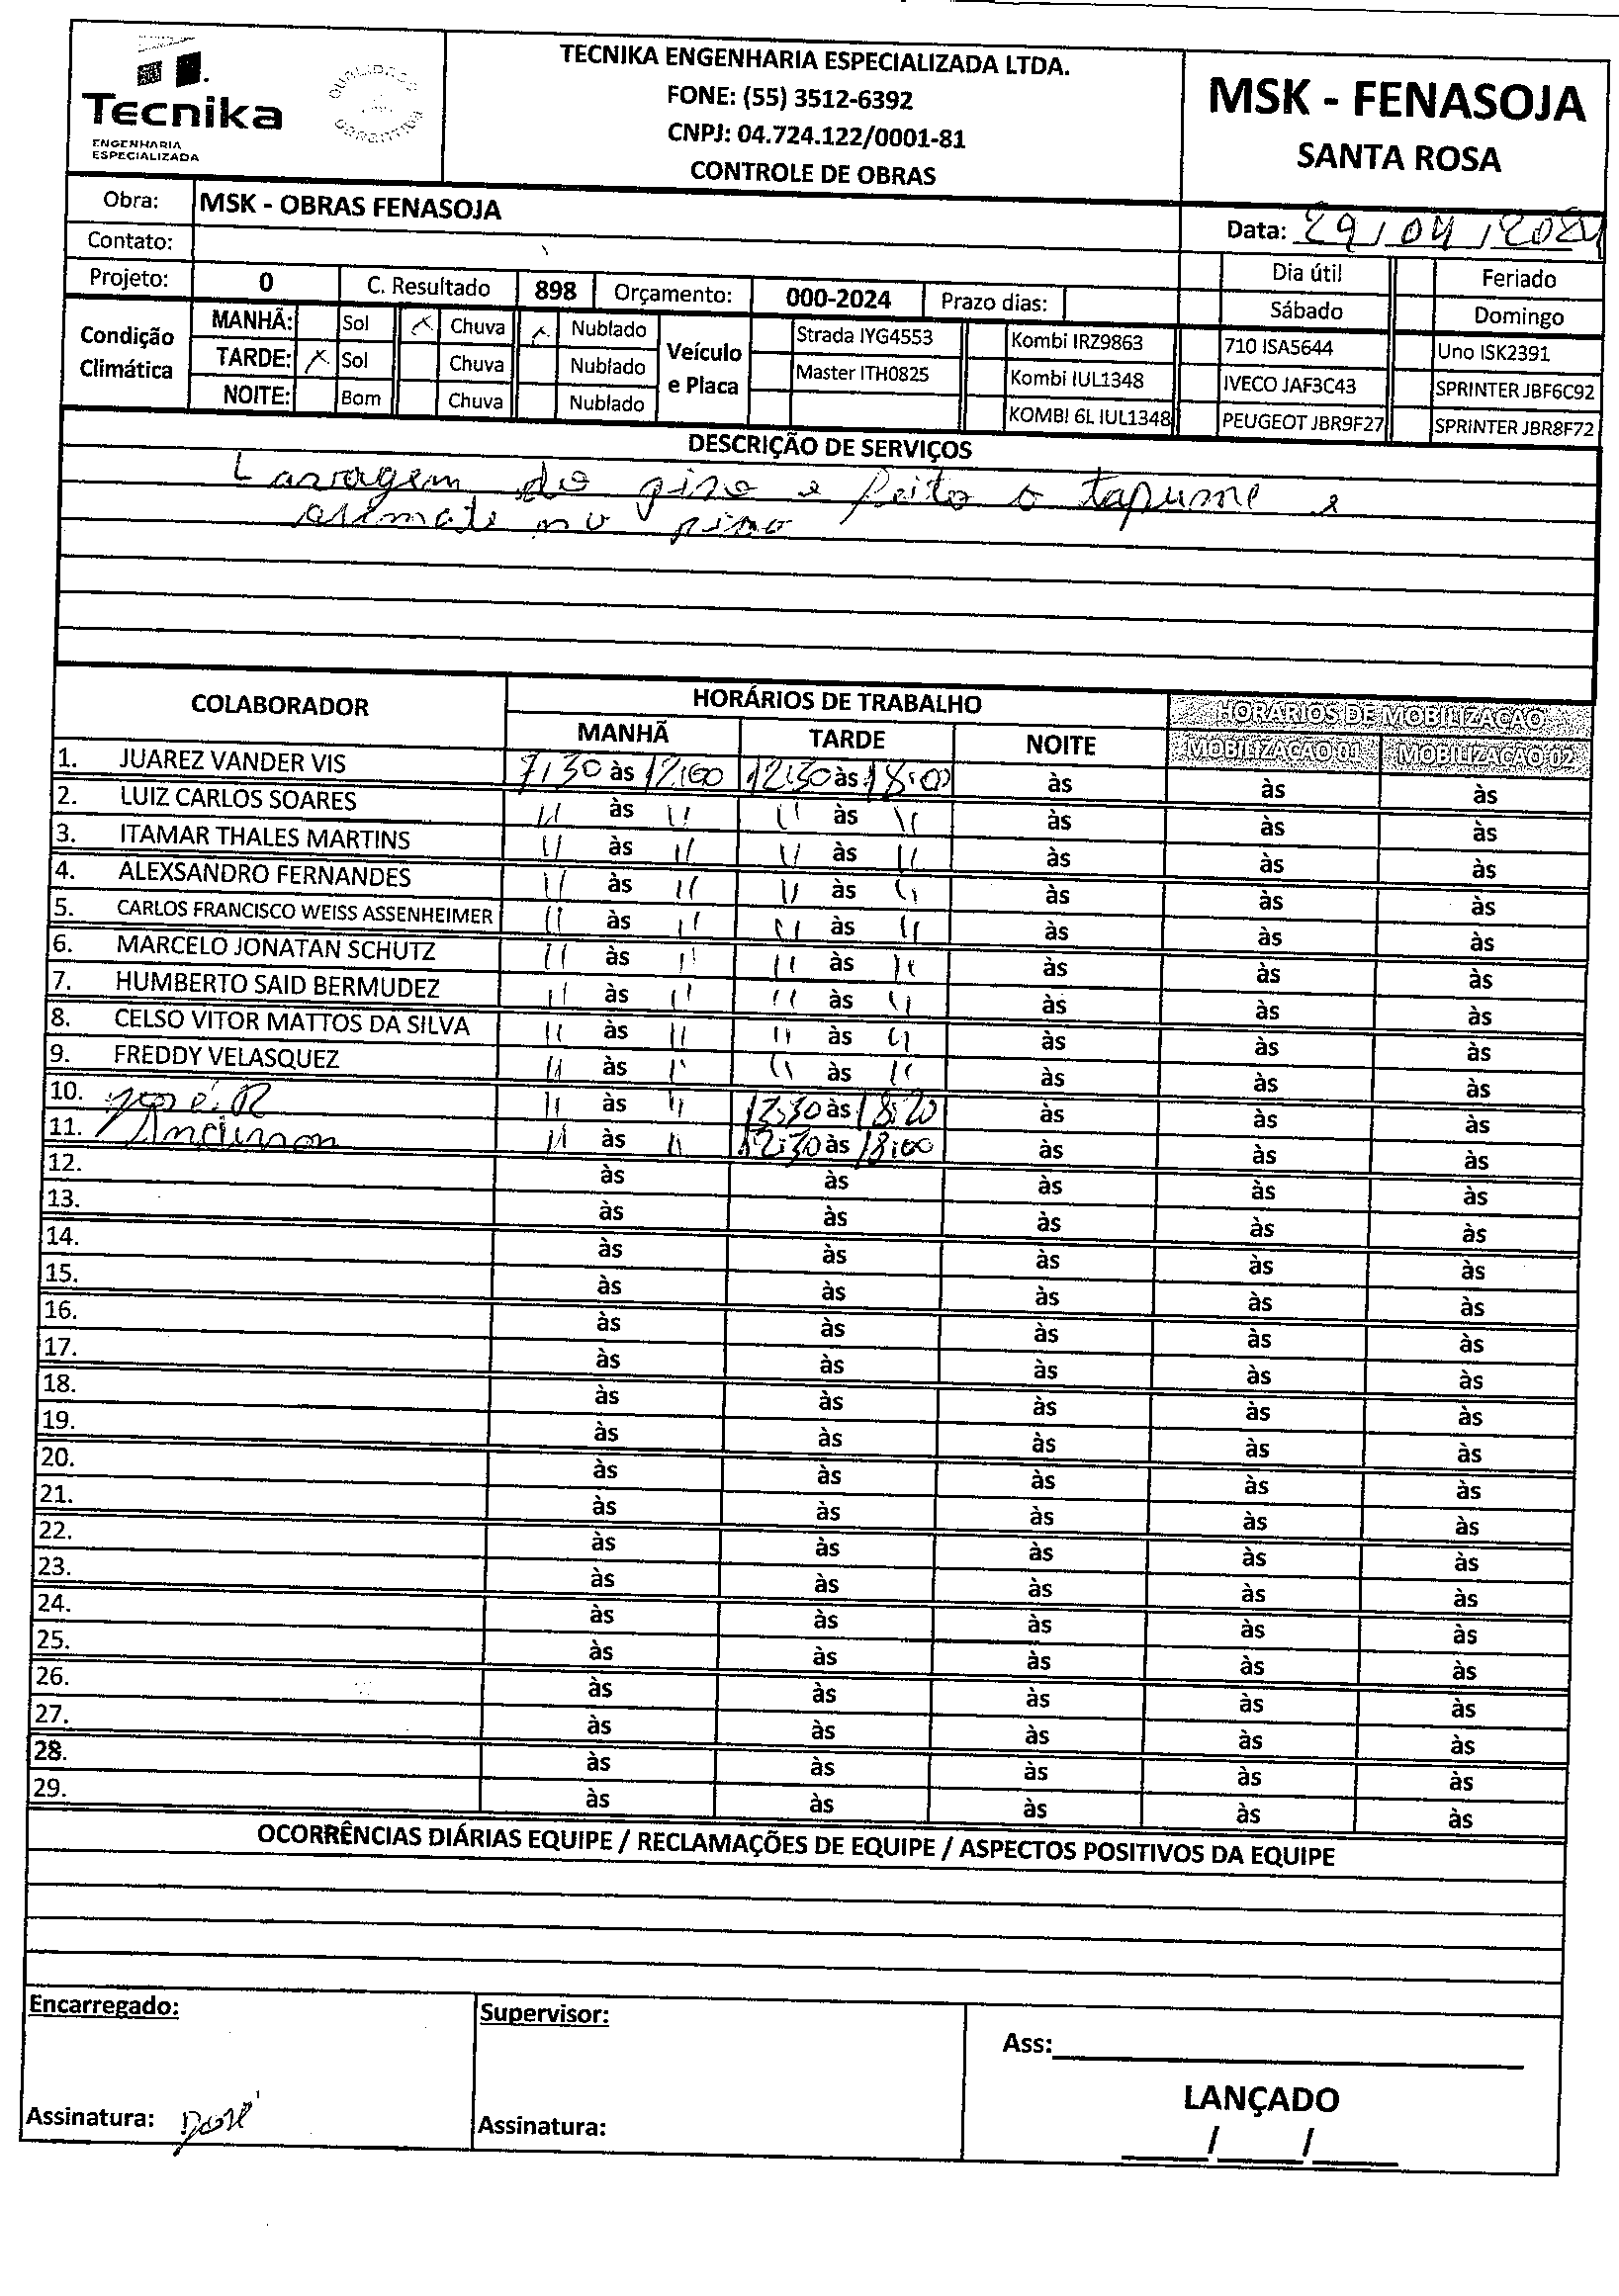 Tecnika
ENGENHARIA
ESPECIALIZADA
QUALIDADE
GARANTIDA
TECNIKA ENGENHARIA ESPECIALIZADA LTDA.
FONE: (55) 3512-6392
CNPJ: 04.724.122/0001-81
CONTROLE DE OBRAS
MSK - FENASOJA
SANTA ROSA
Obra: MSK - OBRAS FENASOJA
Data: 29/04/2024
Contato:
Dia útil Feriado
Projeto: 0 C. Resultado 898 Orçamento: 000-2024 Prazo dias: Sábado Domingo
Condição Climática
MANHÃ: Sol X Chuva X Nublado
TARDE: X Sol Chuva Nublado
NOITE: Bom Chuva Nublado
Veículo e Placa
Strada IYG4553 Kombi IRZ9863 710 ISA5644 Uno ISK2391
Master ITH0825 Kombi IUL1348 IVECO JAF3C43 SPRINTER JBF6C92
KOMBI 6L IUL1348 PEUGEOT JBR9F27 SPRINTER JBR8F72
DESCRIÇÃO DE SERVIÇOS
Lavagem do piso e feito o tapume e
no piso
COLABORADOR HORÁRIOS DE TRABALHO HORÁRIOS DE MOBILIZAÇÃO
MANHÃ TARDE NOITE MOBILIZAÇÃO 01 MOBILIZAÇÃO 02
1. JUAREZ VANDER VIS 7:30 às 12:00 12:30 às 18:00 às às às
2. LUIZ CARLOS SOARES " às " " às " às às às
3. ITAMAR THALES MARTINS " às " " às " às às às
4. ALEXSANDRO FERNANDES " às " " às " às às às
5. CARLOS FRANCISCO WEISS ASSENHEIMER " às " " às " às às às
6. MARCELO JONATAN SCHUTZ " às " " às " às às às
7. HUMBERTO SAID BERMUDEZ " às " " às " às às às
8. CELSO VITOR MATTOS DA SILVA " às " " às " às às às
9. FREDDY VELASQUEZ " às " " às " às às às
10. José R " às " às às às às
11. Anderson " às " 12:30 às 18:00 às às às
12. às às às às às
13. às às às às às
14. às às às às às
15. às às às às às
16. às às às às às
17. às às às às às
18. às às às às às
19. às às às às às
20. às às às às às
21. às às às às às
22. às às às às às
23. às às às às às
24. às às às às às
25. às às às às às
26. às às às às às
27. às às às às às
28. às às às às às
29. às às às às às
OCORRÊNCIAS DIÁRIAS EQUIPE / RECLAMAÇÕES DE EQUIPE / ASPECTOS POSITIVOS DA EQUIPE
Encarregado:
Assinatura: José
Supervisor:
Assinatura:
Ass:
LANÇADO
/ /